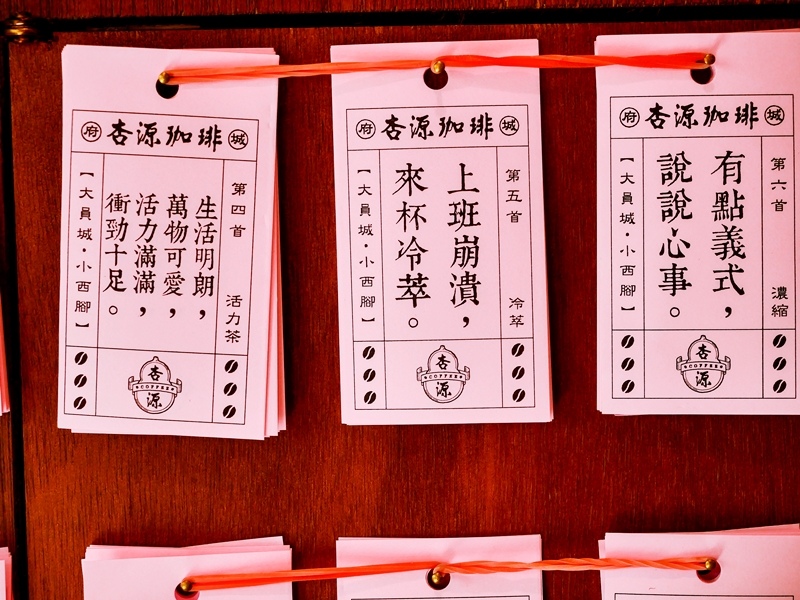 府 杏源珈琲 城
第四首 活力茶
生活明朗，
萬物可愛，
活力滿滿，
衝勁十足。
【大員城・小西腳】
杏
COFFEE
源
府 杏源珈琲 城
第五首 冷萃
上班崩潰，
來杯冷萃。
【大員城・小西腳】
杏
COFFEE
源
府 杏源珈琲 城
第六首 濃縮
有點義式，
說說心事。
【大員城・小西腳】
杏
COFFEE
源